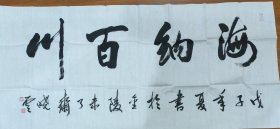 海纳百川
戊子年夏書於金陵未了齋曉雲